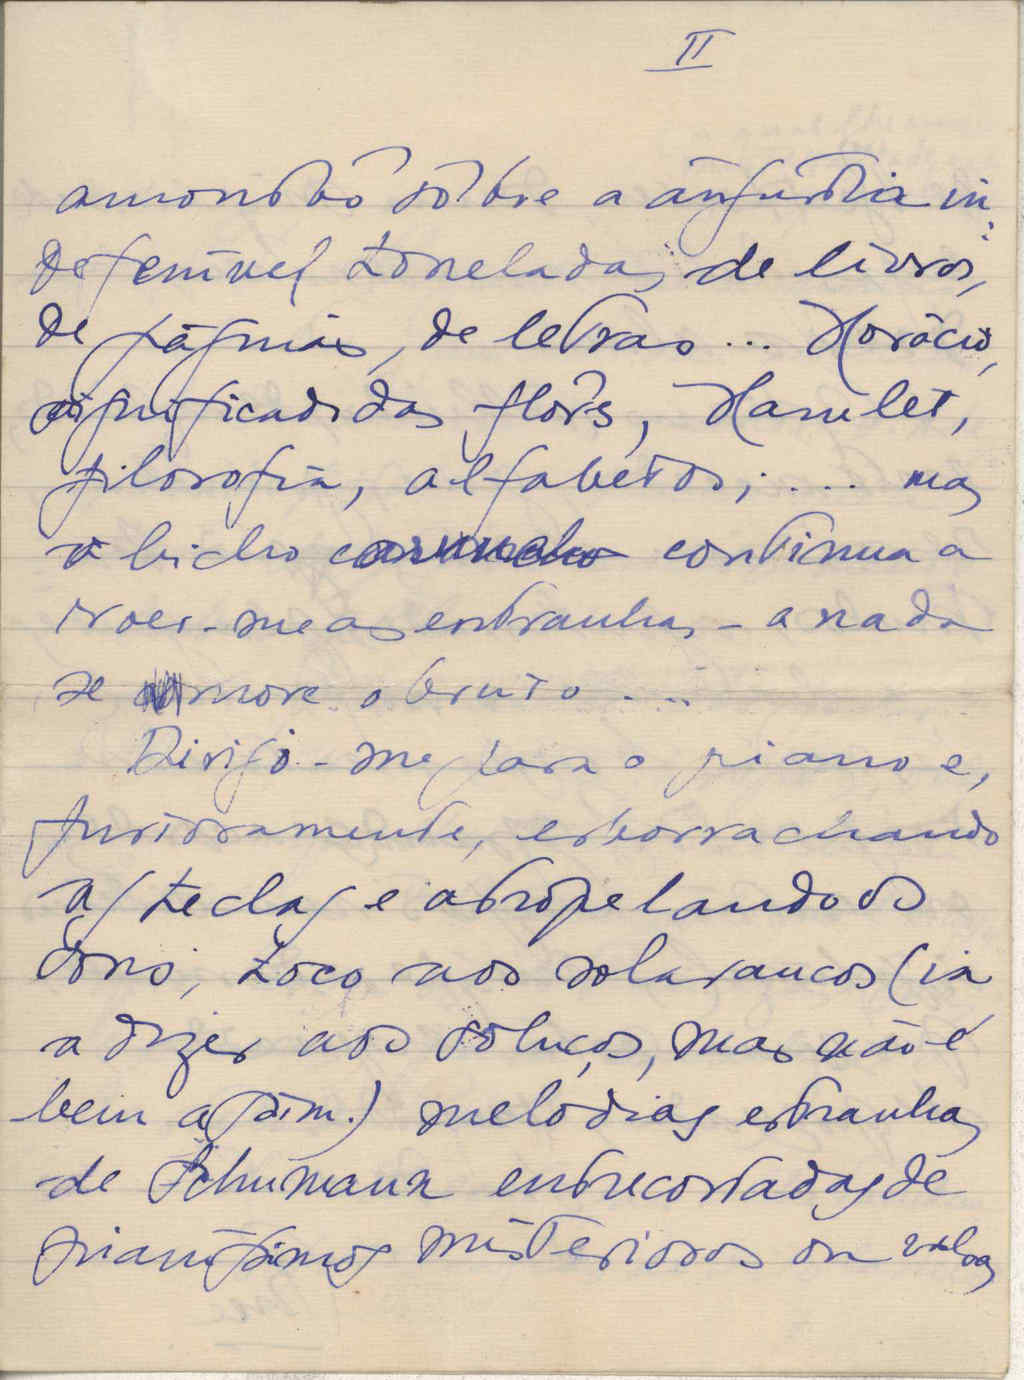 II
amontôo sôbre a angústia in-
defenível toneladas de livros,
de páginas, de letras... Horácio,
significado das flôres, Hamlet,
filosofia, alfabetos; .... mas
o bicho continua a
roer-me as entranhas - a nada
se move o bruto ...
Dirijo-me para o piano e,
furiosamente, esborrachando
as teclas e atropelando os
sons, toco aos solavancos (ia
a dizer aos soluços, mas não é
bem assim.) melodias estranhas
de Schumann entrecortadas de
pianíssimos misteriosos ou